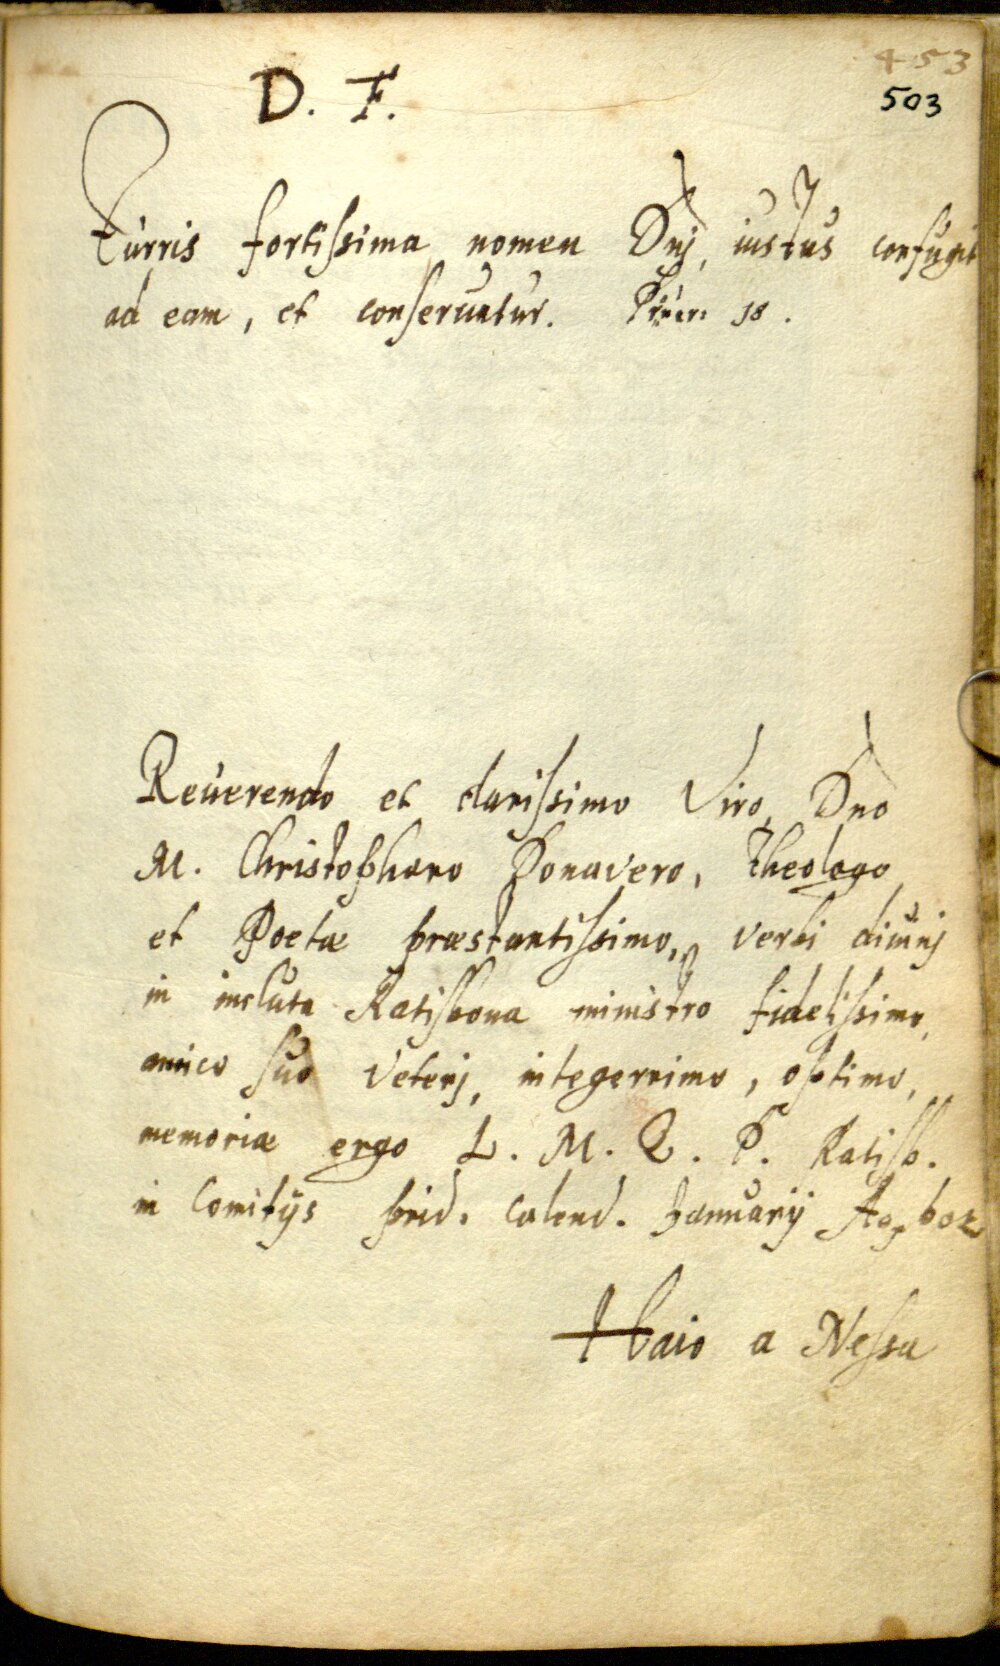 453
503
D. F.
Turris fortissima nomen Dnj, iustus confugit
ad eam, et conseruatur. Prouer: 18.
Reuerendo et clarissimo Viro, Dno
M. Christophoro Donavero, Theologo
et Poetæ præstantissimo, verbi diuinj
in incluta Ratisbona ministro fidelissimo,
amico suo veterj, integerrimo, optimo,
memoriæ ergo L. M. Q. P. Ratisb.
in Comitijs prid. calend. Januarij Ao
Haio a Nessa